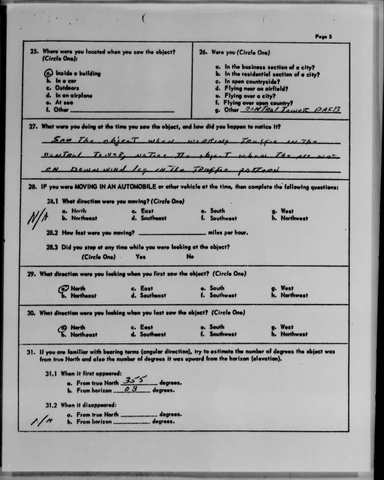 Page 3
25. Where were you located when you saw the object?
(Circle One):
a. Inside a building
b. In a car
c. Outdoors
d. In an airplane
e. At sea
f. Other
26. Were you (Circle One)
a. In the business section of a city?
b. In the residential section of a city?
c. In open countryside?
d. Flying near an airfield?
e. Flying over a city?
f. Flying over open country?
g. Other CONTROL TOWER
27. What were you doing at the time you saw the object, and how did you happen to notice it?
SAW THE OBJECT WHEN WORKING TRAFFIC IN THE
CONTROL TOWER, NOTICE THE OBJECT WHEN THE
ON DOWN WIND LEG IN THE TRAFFIC PATTERN
28. IF you WERE MOVING IN AN AUTOMOBILE or other vehicle at the time, then complete the following questions:
N/A
28.1 What direction were you moving? (Circle One)
a. North c. East e. South g. West
b. Northeast d. Southeast f. Southwest h. Northwest
28.2 How fast were you moving? miles per hour.
28.3 Did you stop at any time while you were looking at the object?
(Circle One) Yes No
29. What direction were you looking when you first saw the object? (Circle One)
a. North c. East e. South g. West
b. Northeast d. Southeast f. Southwest h. Northwest
30. What direction were you looking when you last saw the object? (Circle One)
a. North c. East e. South g. West
b. Northeast d. Southeast f. Southwest h. Northwest
31. If you are familiar with bearing terms (angular direction), try to estimate the number of degrees the object was
from true North and also the number of degrees it was upward from the horizon (elevation).
31.1 When it first appeared:
a. From true North 355 degrees.
b. From horizon 03 degrees.
31.2 When it disappeared:
a. From true North degrees.
N/A b. From horizon degrees.